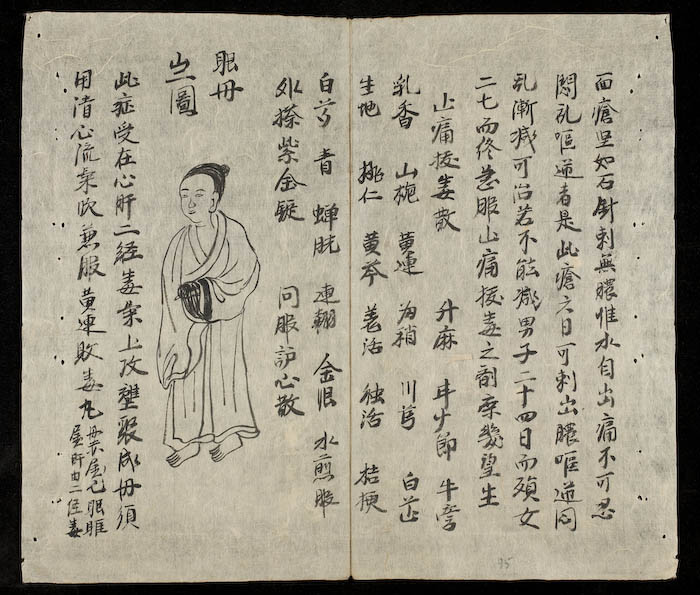 面瘡堅如石針刺無膿惟水自出痛不可忍
悶乱嘔逆者是此瘡六日可刺出膿嘔逆悶
乱漸减可治若不能减男子二十四日而殞女
二七而终急服止痛拔毒之劑庶幾望生
止痛拔毒散 升麻 牛子節 牛膏
乳香 山梔 黄連 甘稍 川芎 白芷
生地 桃仁 黄芩 羌活 独活 桔梗
白芍 青 蝉脱 連翹 金艮 水煎服
外搽紫金錠 间服护心散
眼丹
之圖
此症受在心肝二経毒氣上攻壅聚成丹須
用清心流氣饮兼服黄連败毒丸